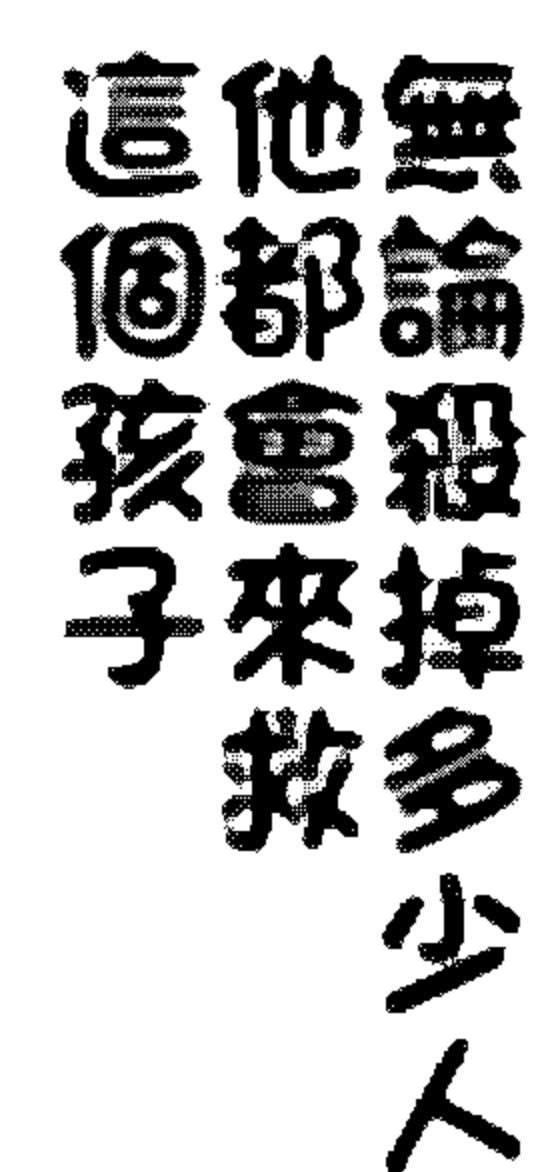 無論殺掉多少人
他都會來救
這個孩子